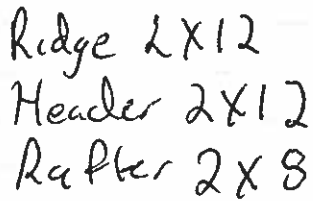 Ridge 2X12
Header 2X12
Rafter 2X8